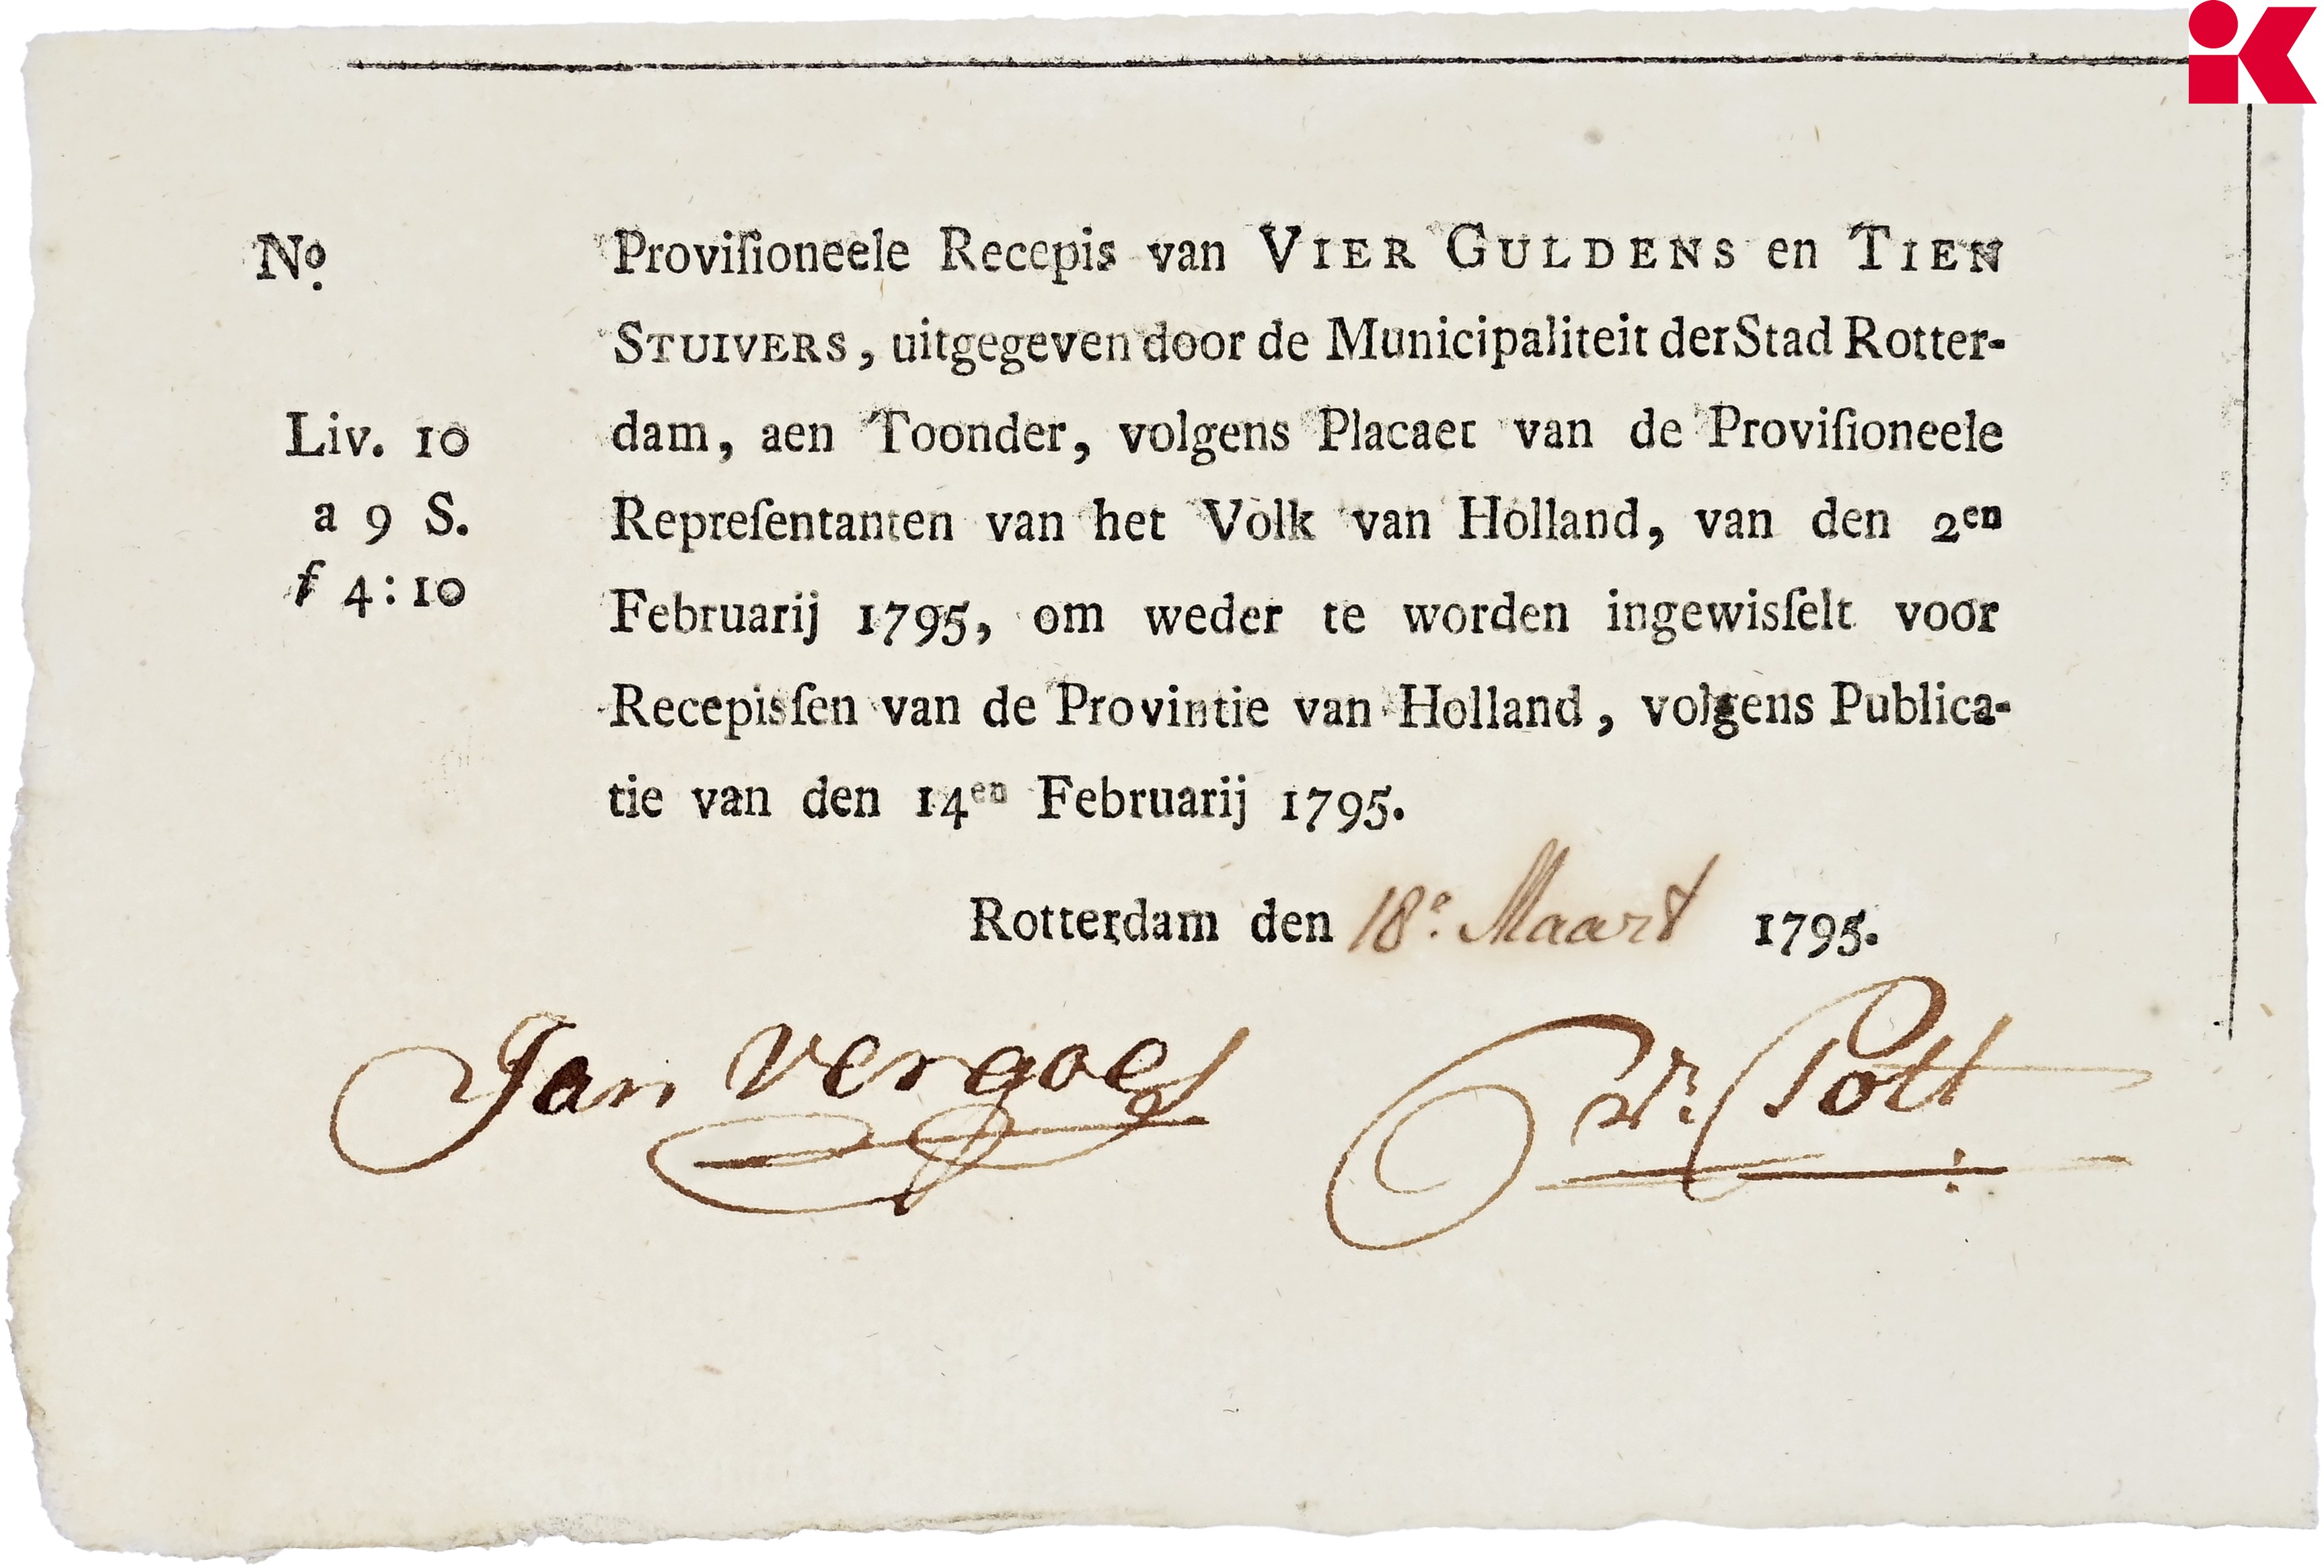 No.
Proviſioneele Recepis van VIER GULDENS en TIEN
STUIVERS, uitgegeven door de Municipaliteit der Stad Rotter-
Liv. 10
dam, aen Toonder, volgens Placaet van de Proviſioneele
a 9 S.
Repreſentanten van het Volk van Holland, van den 2en
f 4:10
Februarij 1795, om weder te worden ingewisſelt voor
Recepisſen van de Provintie van Holland, volgens Publica-
tie van den 14en Februarij 1795.
Rotterdam den 18e. Maart 1795.
Jan Vergoes
Pott